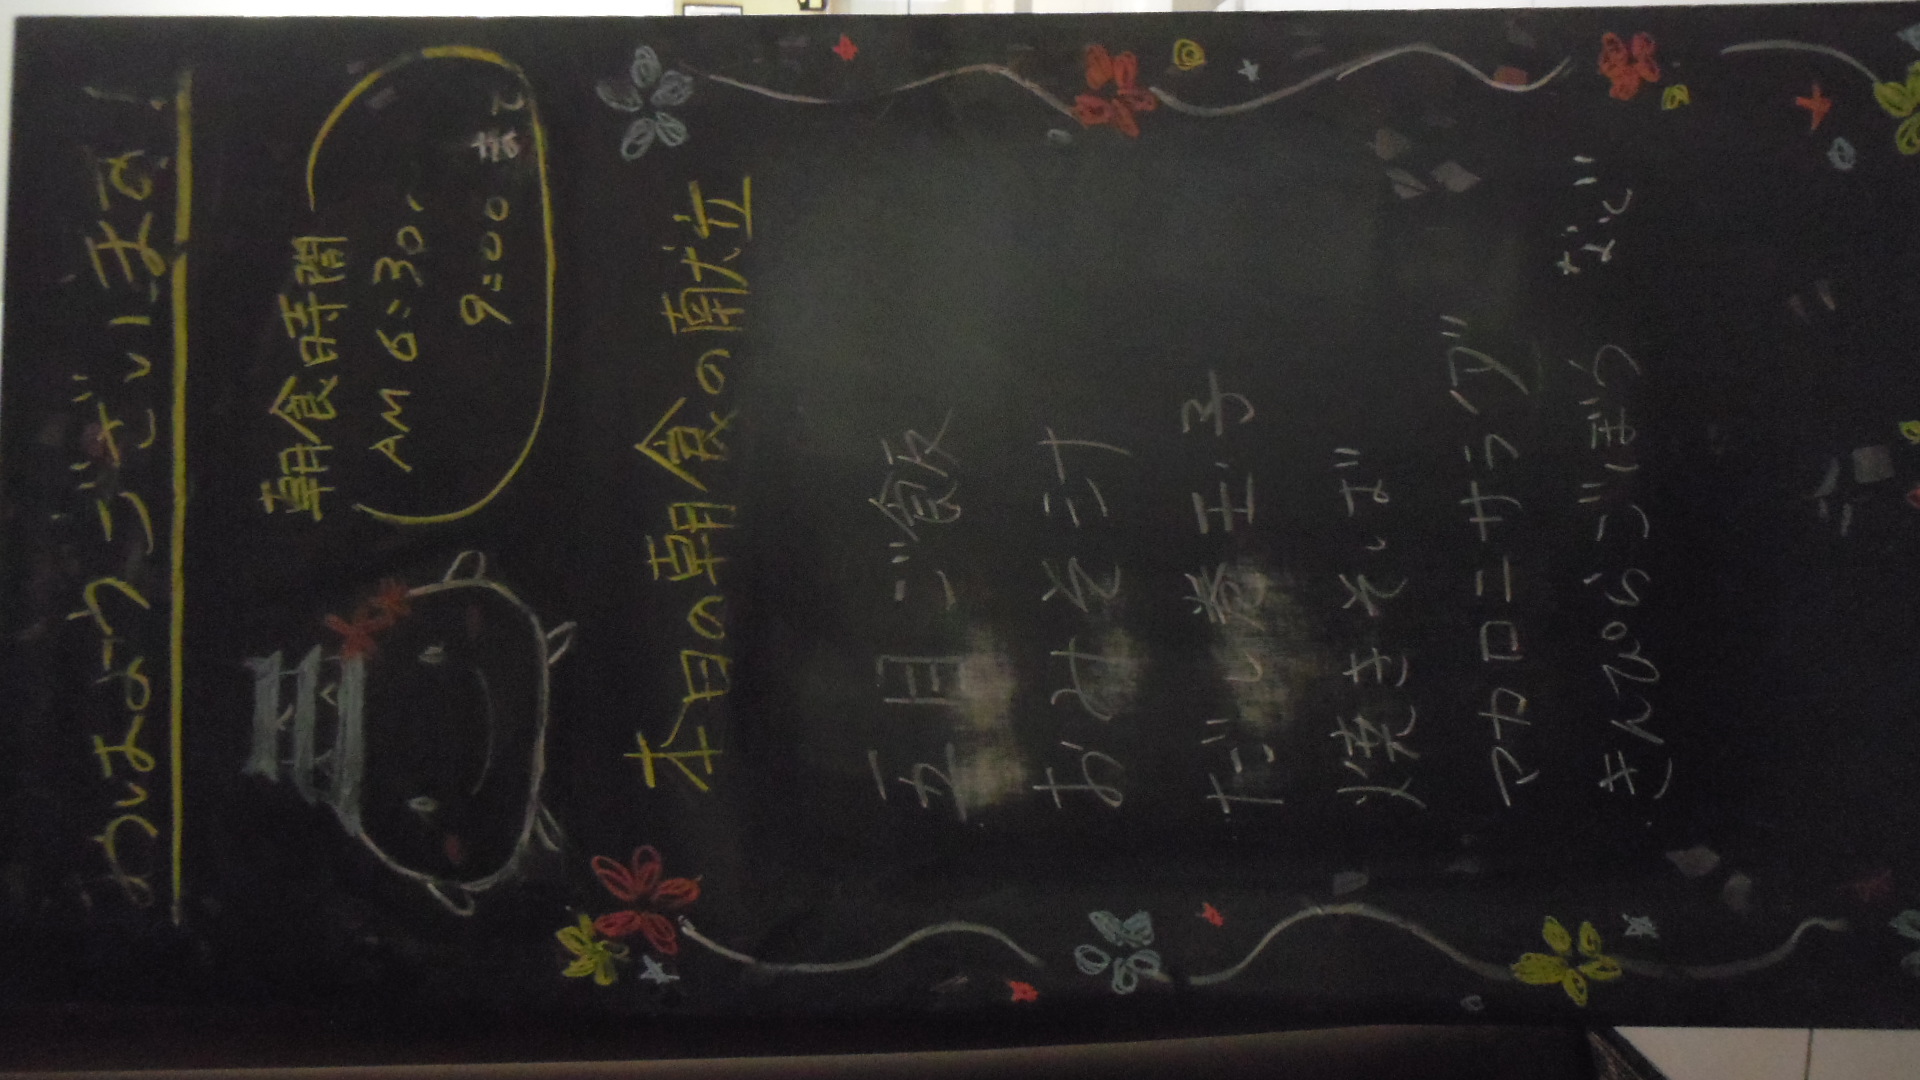 おはようございます!
朝食時間
AM 6:30〜
9:00 まで
本日の朝食の献立
五目ご飯
おみそ汁
だし巻玉子
焼きそば
マカロニサラダ
きんぴらごぼう
など